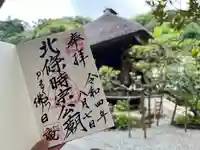 奉拝
令和四年
八月七日
北條時宗公廟
佛日庵